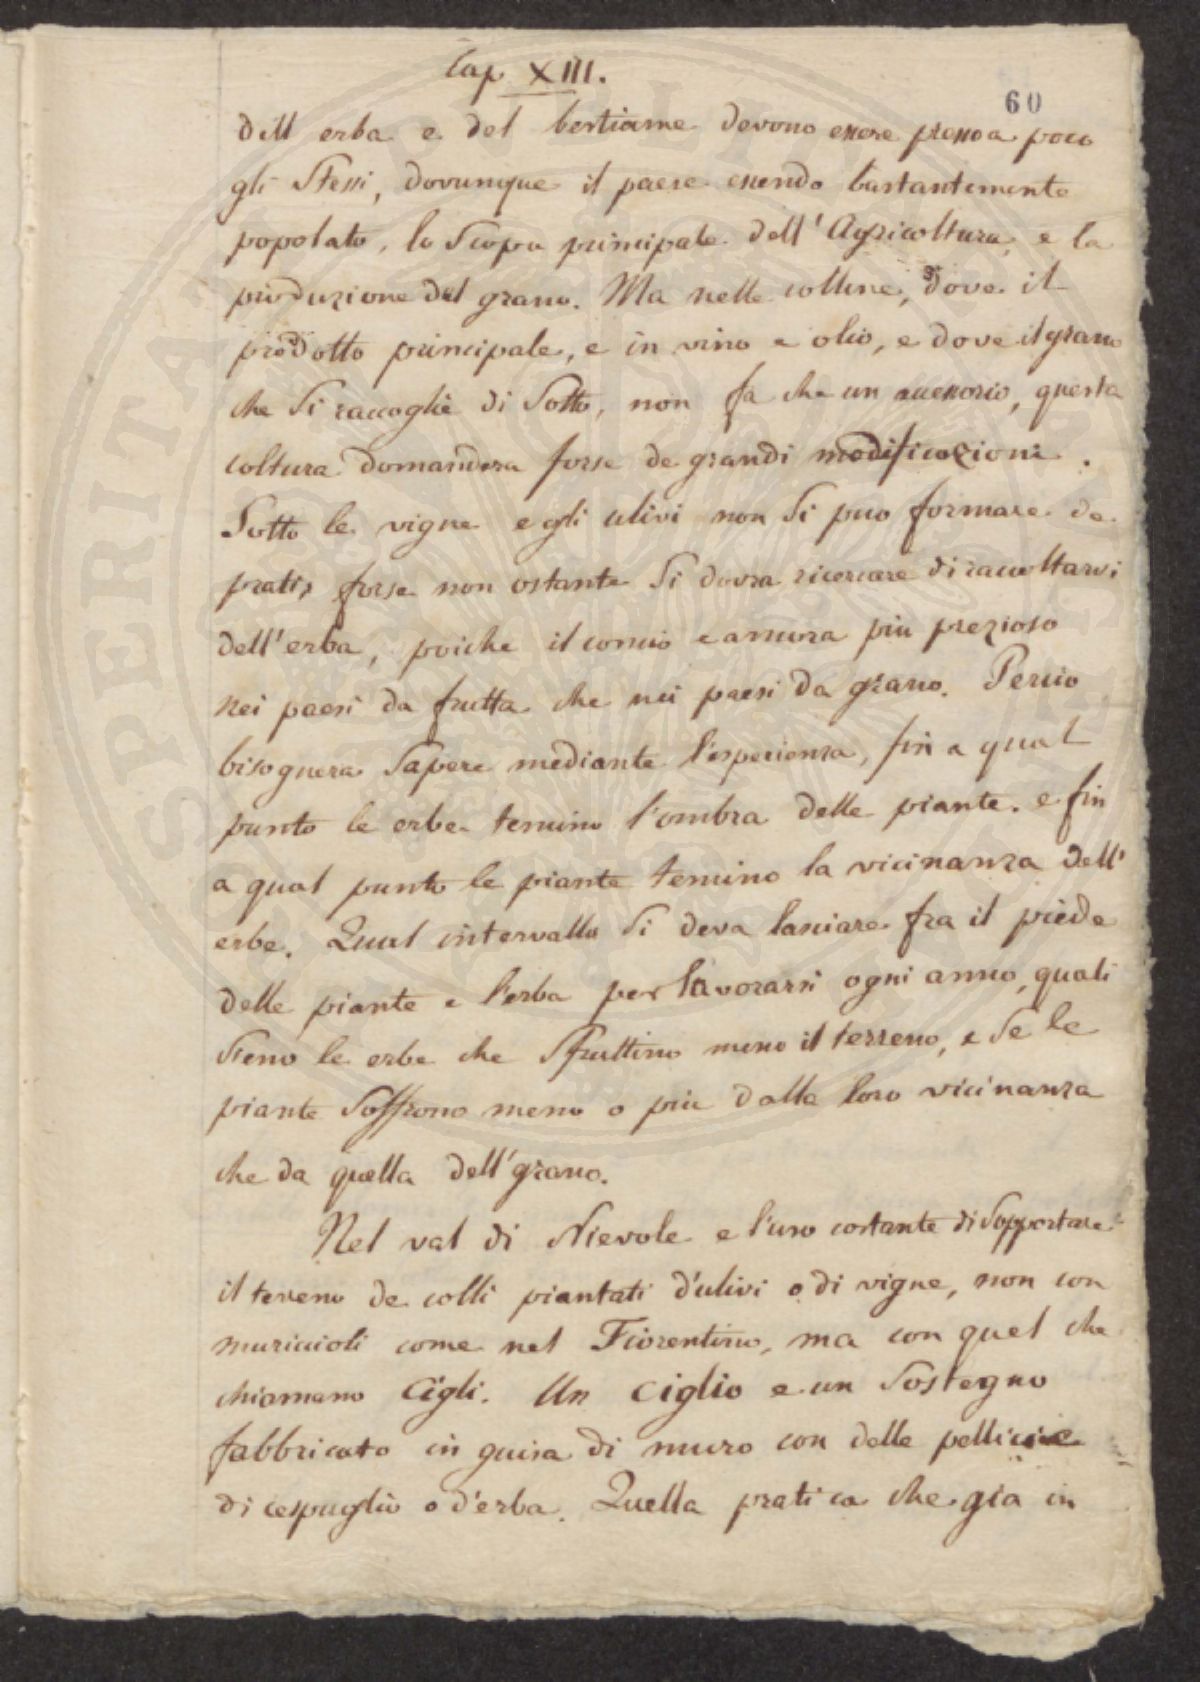 Cap XIII.
60
dell erba e del bestiame devono essere presso a poco
gli Stessi, dovunque il paese essendo bastantemente
popolato, lo Scopo principale dell'Agricoltura, e la
produzione del grano. Ma nelle colline, dove il
prodotto principale, e in vino e olio, e dove il grano
che Si raccoglie di Sotto, non fa che un accessorio, questa
coltura domandera forse de grandi modificazioni.
Sotto le vigne e gli ulivi non Si puo formare de
prati, forse non ostante Si dovra ricercare di raccoltarvi
dell'erba, poiche il concio e ancora piu prezioso
nei paesi da frutta che nei paesi da grano. Percio
bisognera Sapere mediante l'esperienza, fin a qual
punto le erbe temino l'ombra delle piante. e fin
a qual punto le piante temino la vicinanza dell'
erbe. Qual intervallo Si deva lasciare fra il piede
delle piante e l'erba per lavorarsi ogni anno, quali
Sieno le erbe che Sfruttino meno il terreno, e Se le
piante Soffrono meno o piu dalla loro vicinanza
che da quella dell'grano.
Nel val di Nievole e l'uso costante di Sopportare
il tereno de colli piantati d'ulivi o di vigne, non con
muricioli come nel Fiorentino, ma con quel che
chiamano Cigli. Un Ciglio e un Sostegno
fabbricato in guisa di muro con delle pellicie
di cespuglio o d'erba. Quella pratica che gia in